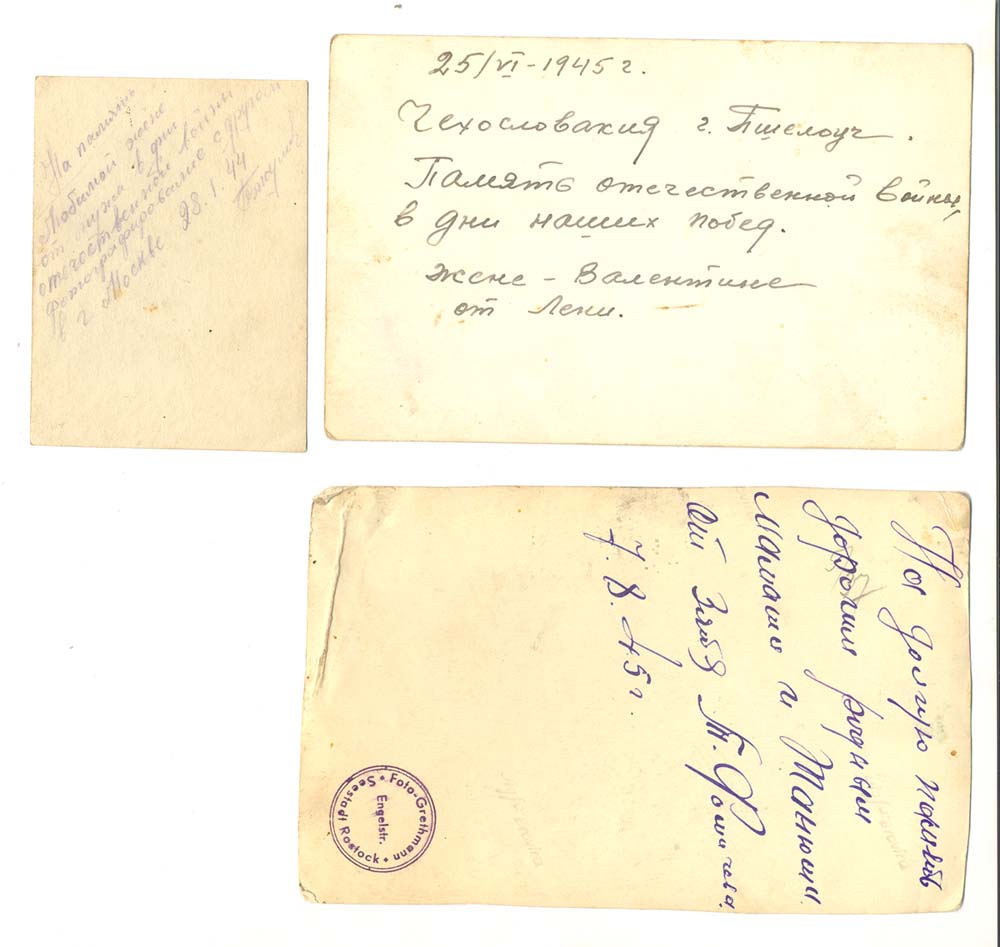 На память
Любимой жене
от мужа в дни
отечественной войны
Фотографирование с другом
в г. Москве 28.1.44
25/VI-1945 г.
Чехословакия г. Пшелоуч.
Память отечественной войны,
в дни наших побед.
Жене - Валентине
от Лени.
На долгую память
родным
Мамаше и
От
7.8.45 г.
Foto-Grethmann
Engelstr.
Seestadt Rostock